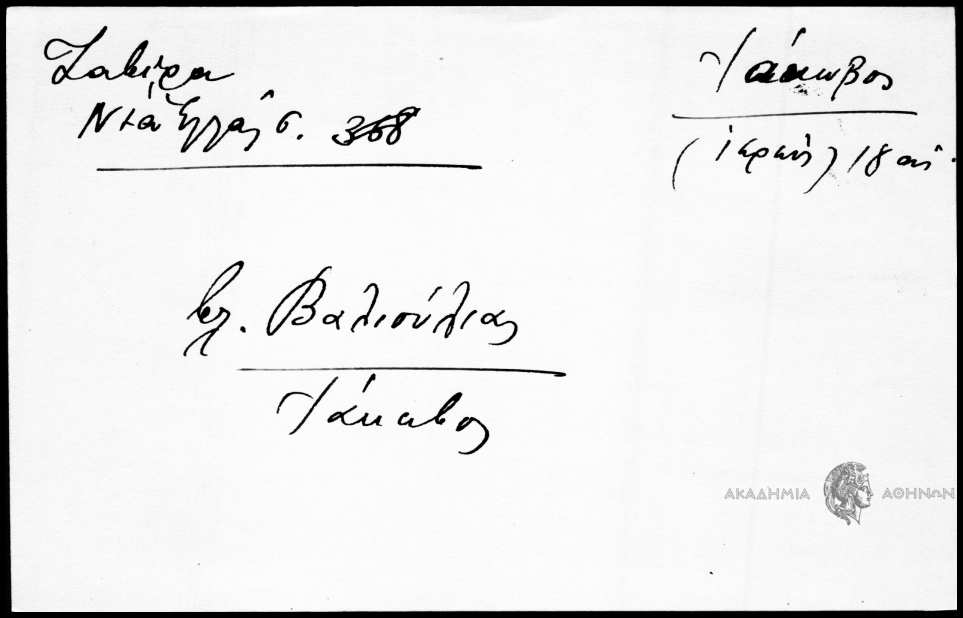 Ζαβίρα
Νέα Ἑλλάς σ. 368
Ἰάκωβος
(ἱερεύς) 18 αἰ.
βλ. Βαλιούλιας
Ἰάκωβος
ΑΚΑΔΗΜΙΑ ΑΘΗΝΩΝ